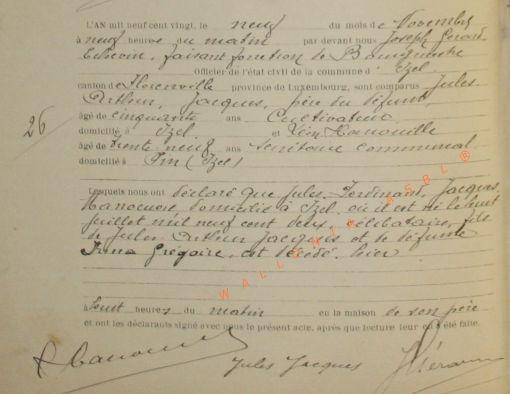 L'AN mil neuf cent vingt, le neuf du mois de Novembre
à neuf heures du matin par devant nous Joseph Gérard
Echevin, faisant fonction de Bourgmestre
Officier de l'état civil de la commune d'Izel
canton de Florenville province de Luxembourg, sont comparus Jules
Arthur, Jacques, père du défunt,
26
âgé de cinquante ans Cultivateur
domicilié à Izel et Léon Hanouille
âgé de trente neuf ans Secrétaire communal
domicilié à Pin (Izel)
Lesquels nous ont déclaré que Jules Ferdinand, Jacques
Manoeuvre domicilié à Izel où il est né le huit
juillet mil neuf cent deux, célibataire, fils
de Jules Arthur Jacques et de défunte
Irma Grégoire, est décédé hier
à huit heures du matin en la maison de son père
et ont les déclarants signé avec nous le présent acte, après que lecture leur en a été faite.
WALLONIE ASBL ®
Jules Jacques